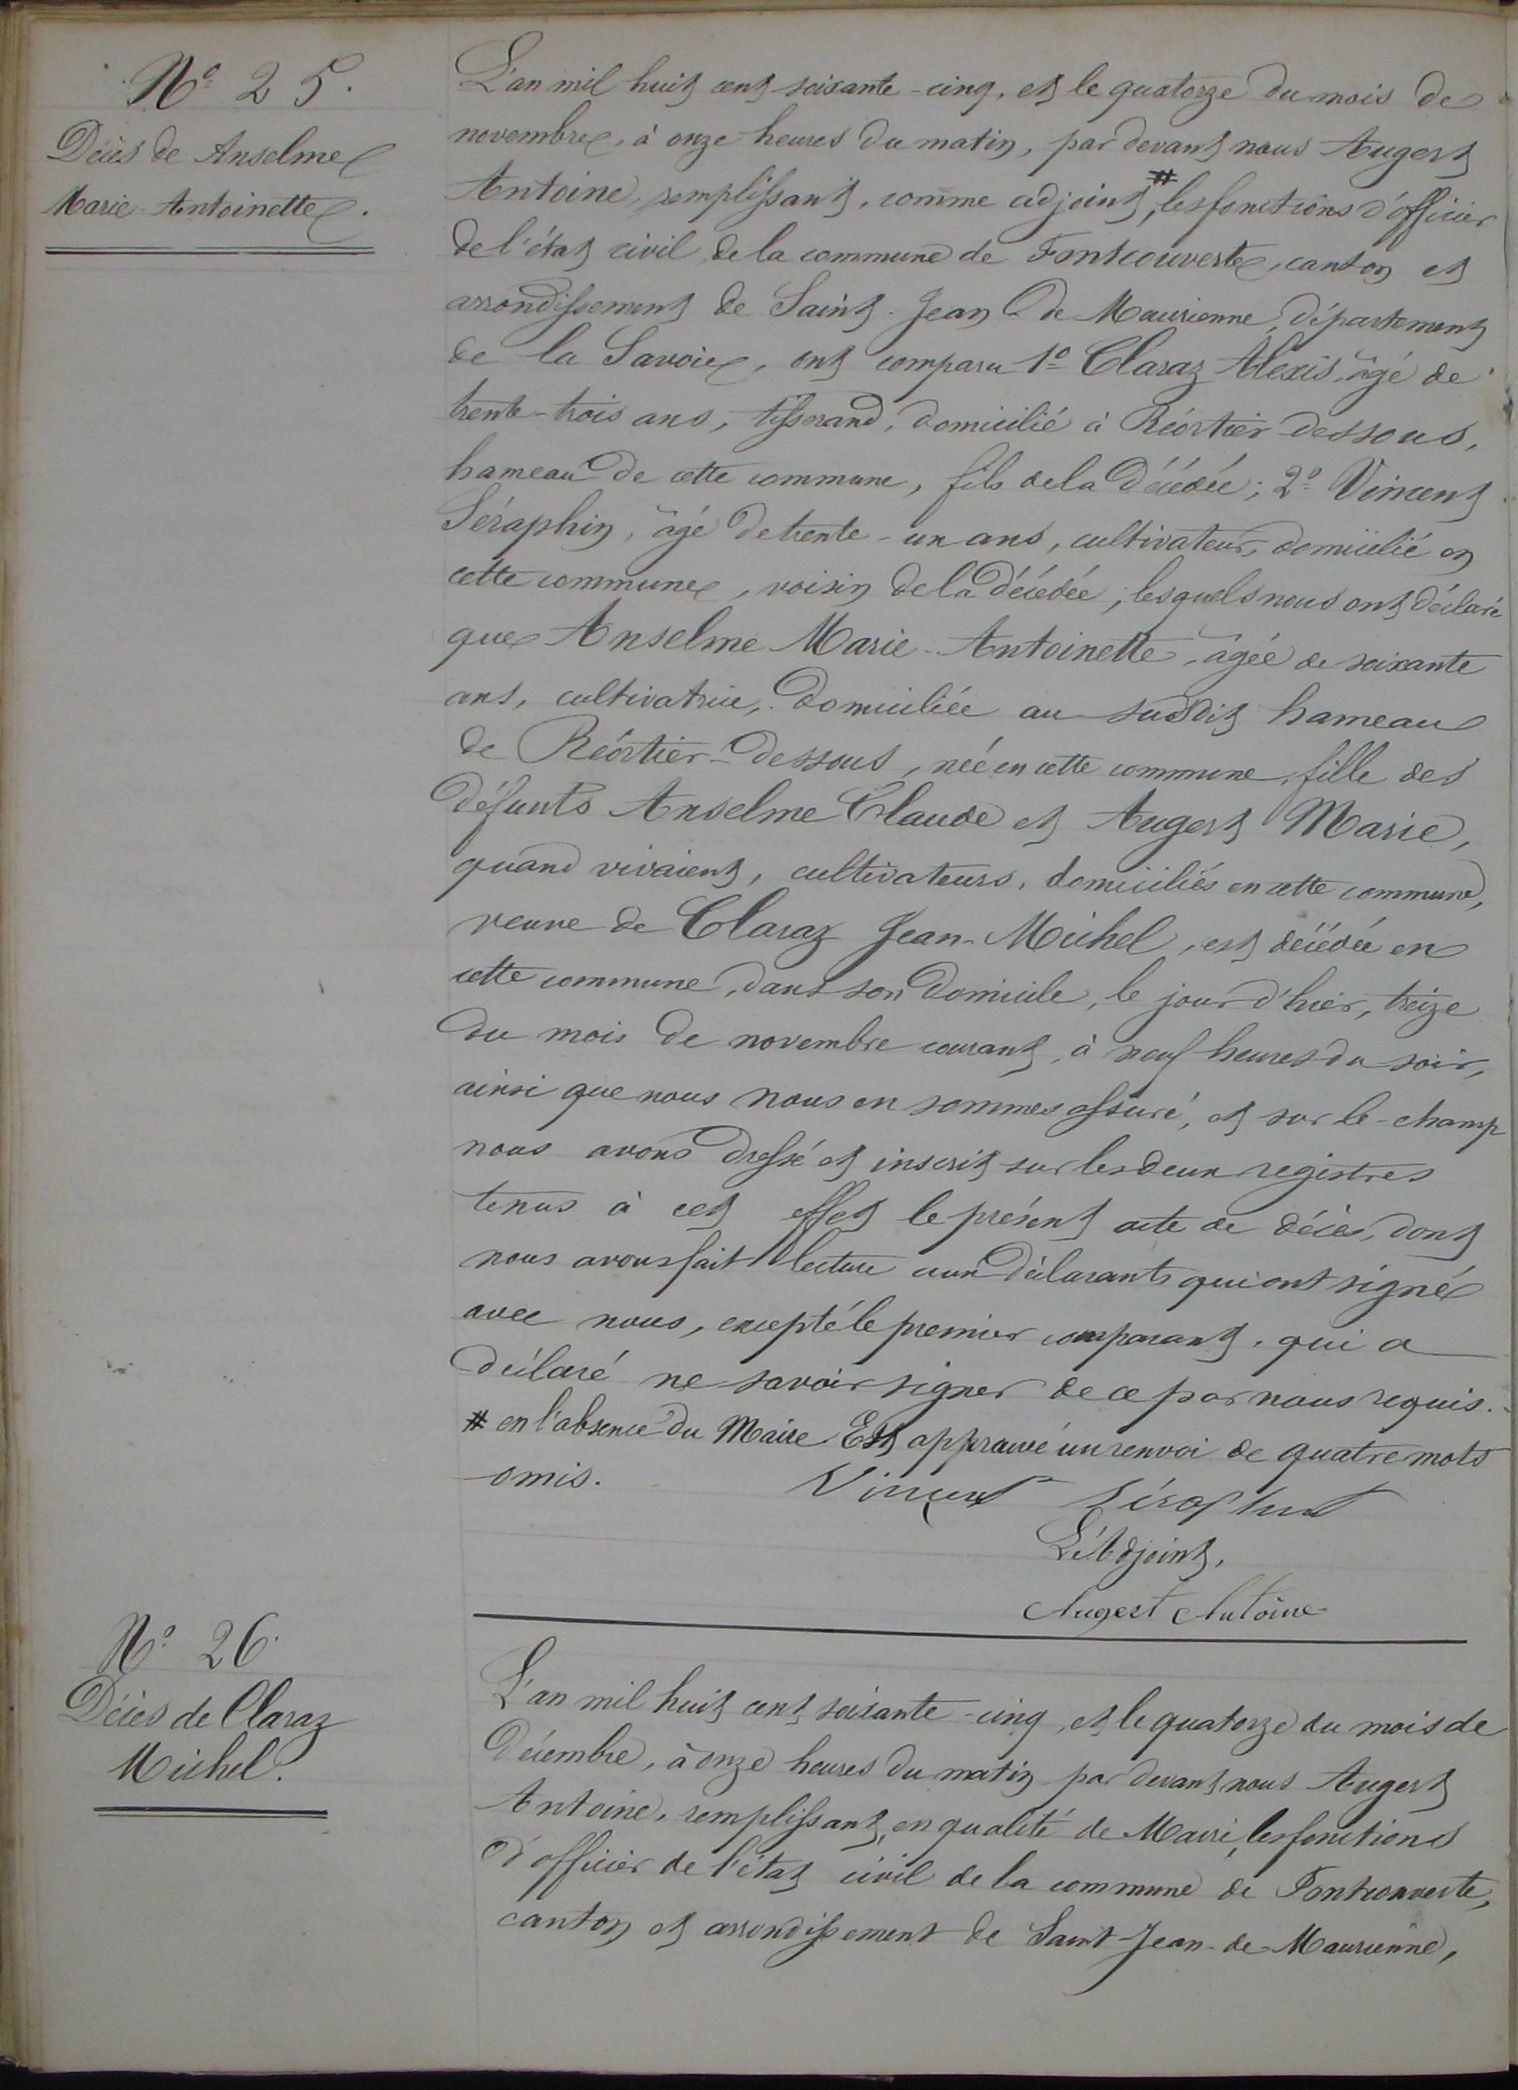 N° 25.
Décès de Anselme
Marie-Antoinette.
L'an mil huit cent soixante-cinq, et le quatorze du mois de
novembre, à onze heures du matin, par devant nous Augert
Antoine, remplissant, comme adjoint,# les fonctions d'officier
de l'état civil de la commune de Fontcouverte, canton et
arrondissement de Saint-Jean-de Maurienne, département
de la Savoie, ont comparu 1° Claraz Alexis, âgé de
trente-trois ans, tisserand, domicilié à Réortier-dessous,
hameau de cette commune, fils de la décédée; 2° Vincent
Séraphin, âgé de trente-un ans, cultivateur, domicilié en
cette commune, voisin de la décédée; lesquels nous ont déclaré
que Anselme Marie-Antoinette, âgée de soixante
ans, cultivatrice, domiciliée au susdit hameau
de Réortier-dessous, née en cette commune, fille des
défunts Anselme Claude et Augert Marie,
quand vivaient, cultivateurs, domiciliés en cette commune,
veuve de Claraz Jean-Michel, est décédée en
cette commune, dans son domicile, le jour d'hier, treize
du mois de novembre courant, à neuf heures du soir,
ainsi que nous nous en sommes assuré, et sur le-champ
nous avons dressé et inscrit sur les deux registres
tenus à cet effet le présent acte de décès, dont
nous avons fait lecture aux déclarants qui ont signé
avec nous, excepté le premier comparant, qui a
déclaré ne savoir signer de ce par nous requis.
# en l'absence du Maire Est approuvé un renvoi de quatre mots
omis. Vincent Séraphin
L'Adjoint,
Augert Antoine
N° 26.
Décès de Claraz
Michel.
L'an mil huit cent soixante-cinq, et le quatorze du mois de
Décembre, à onze heures du matin par devant nous Augert
Antoine, remplissant, en qualité de Maire, les fonctions
d'officier de l'état civil de la commune de Fontcouverte,
canton et arrondissement de Saint-Jean-de-Maurienne,